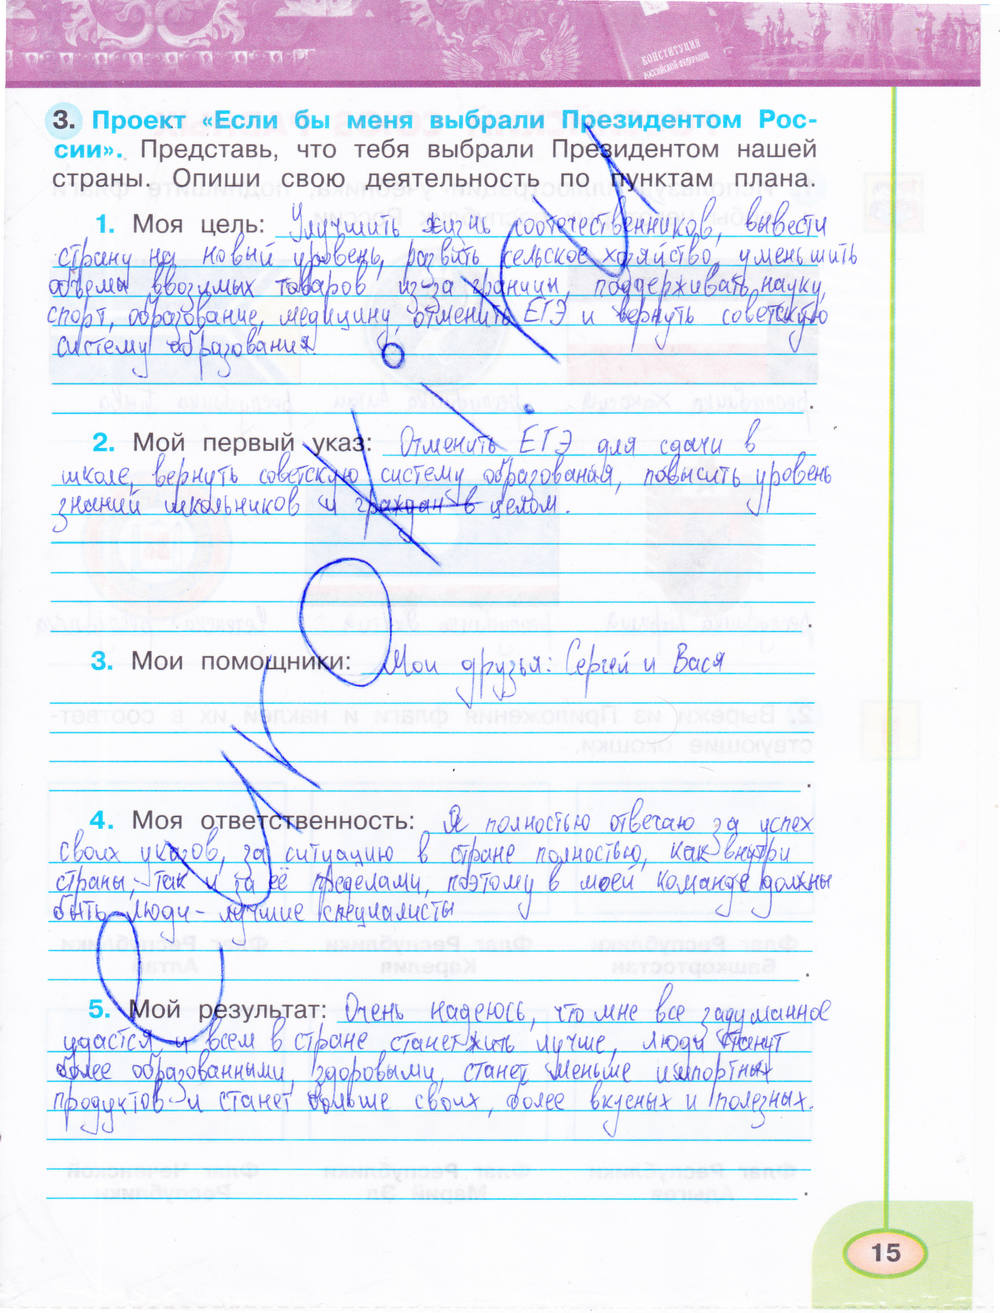 КОНСТИТУЦИЯ
РОССИЙСКОЙ ФЕДЕРАЦИИ
3. Проект «Если бы меня выбрали Президентом Рос-
сии». Представь, что тебя выбрали Президентом нашей
страны. Опиши свою деятельность по пунктам плана.
1. Моя цель: Улучшить жизнь соотечественников, вывести
страну на новый уровень, развить сельское хозяйство, уменьшить
объемы ввозимых товаров из-за границы, поддерживать науку,
спорт, образование, медицину, отменить ЕГЭ и вернуть советскую
систему образования.
2. Мой первый указ: Отменить ЕГЭ для сдачи в
школе, вернуть советскую систему образования, повысить уровень
знаний школьников и граждан в целом.
3. Мои помощники: Мои друзья: Сергей и Вася
4. Моя ответственность: Я полностью отвечаю за успех
своих указов, за ситуацию в стране полностью, как внутри
страны, так и за её пределами, поэтому в моей команде должны
быть люди - лучшие специалисты
5. Мой результат: Очень надеюсь, что мне все задуманное
удастся и всем в стране станет жить лучше, люди станут
более образованными, здоровыми, станет меньше импортных
продуктов и станет больше своих, более вкусных и полезных.
15